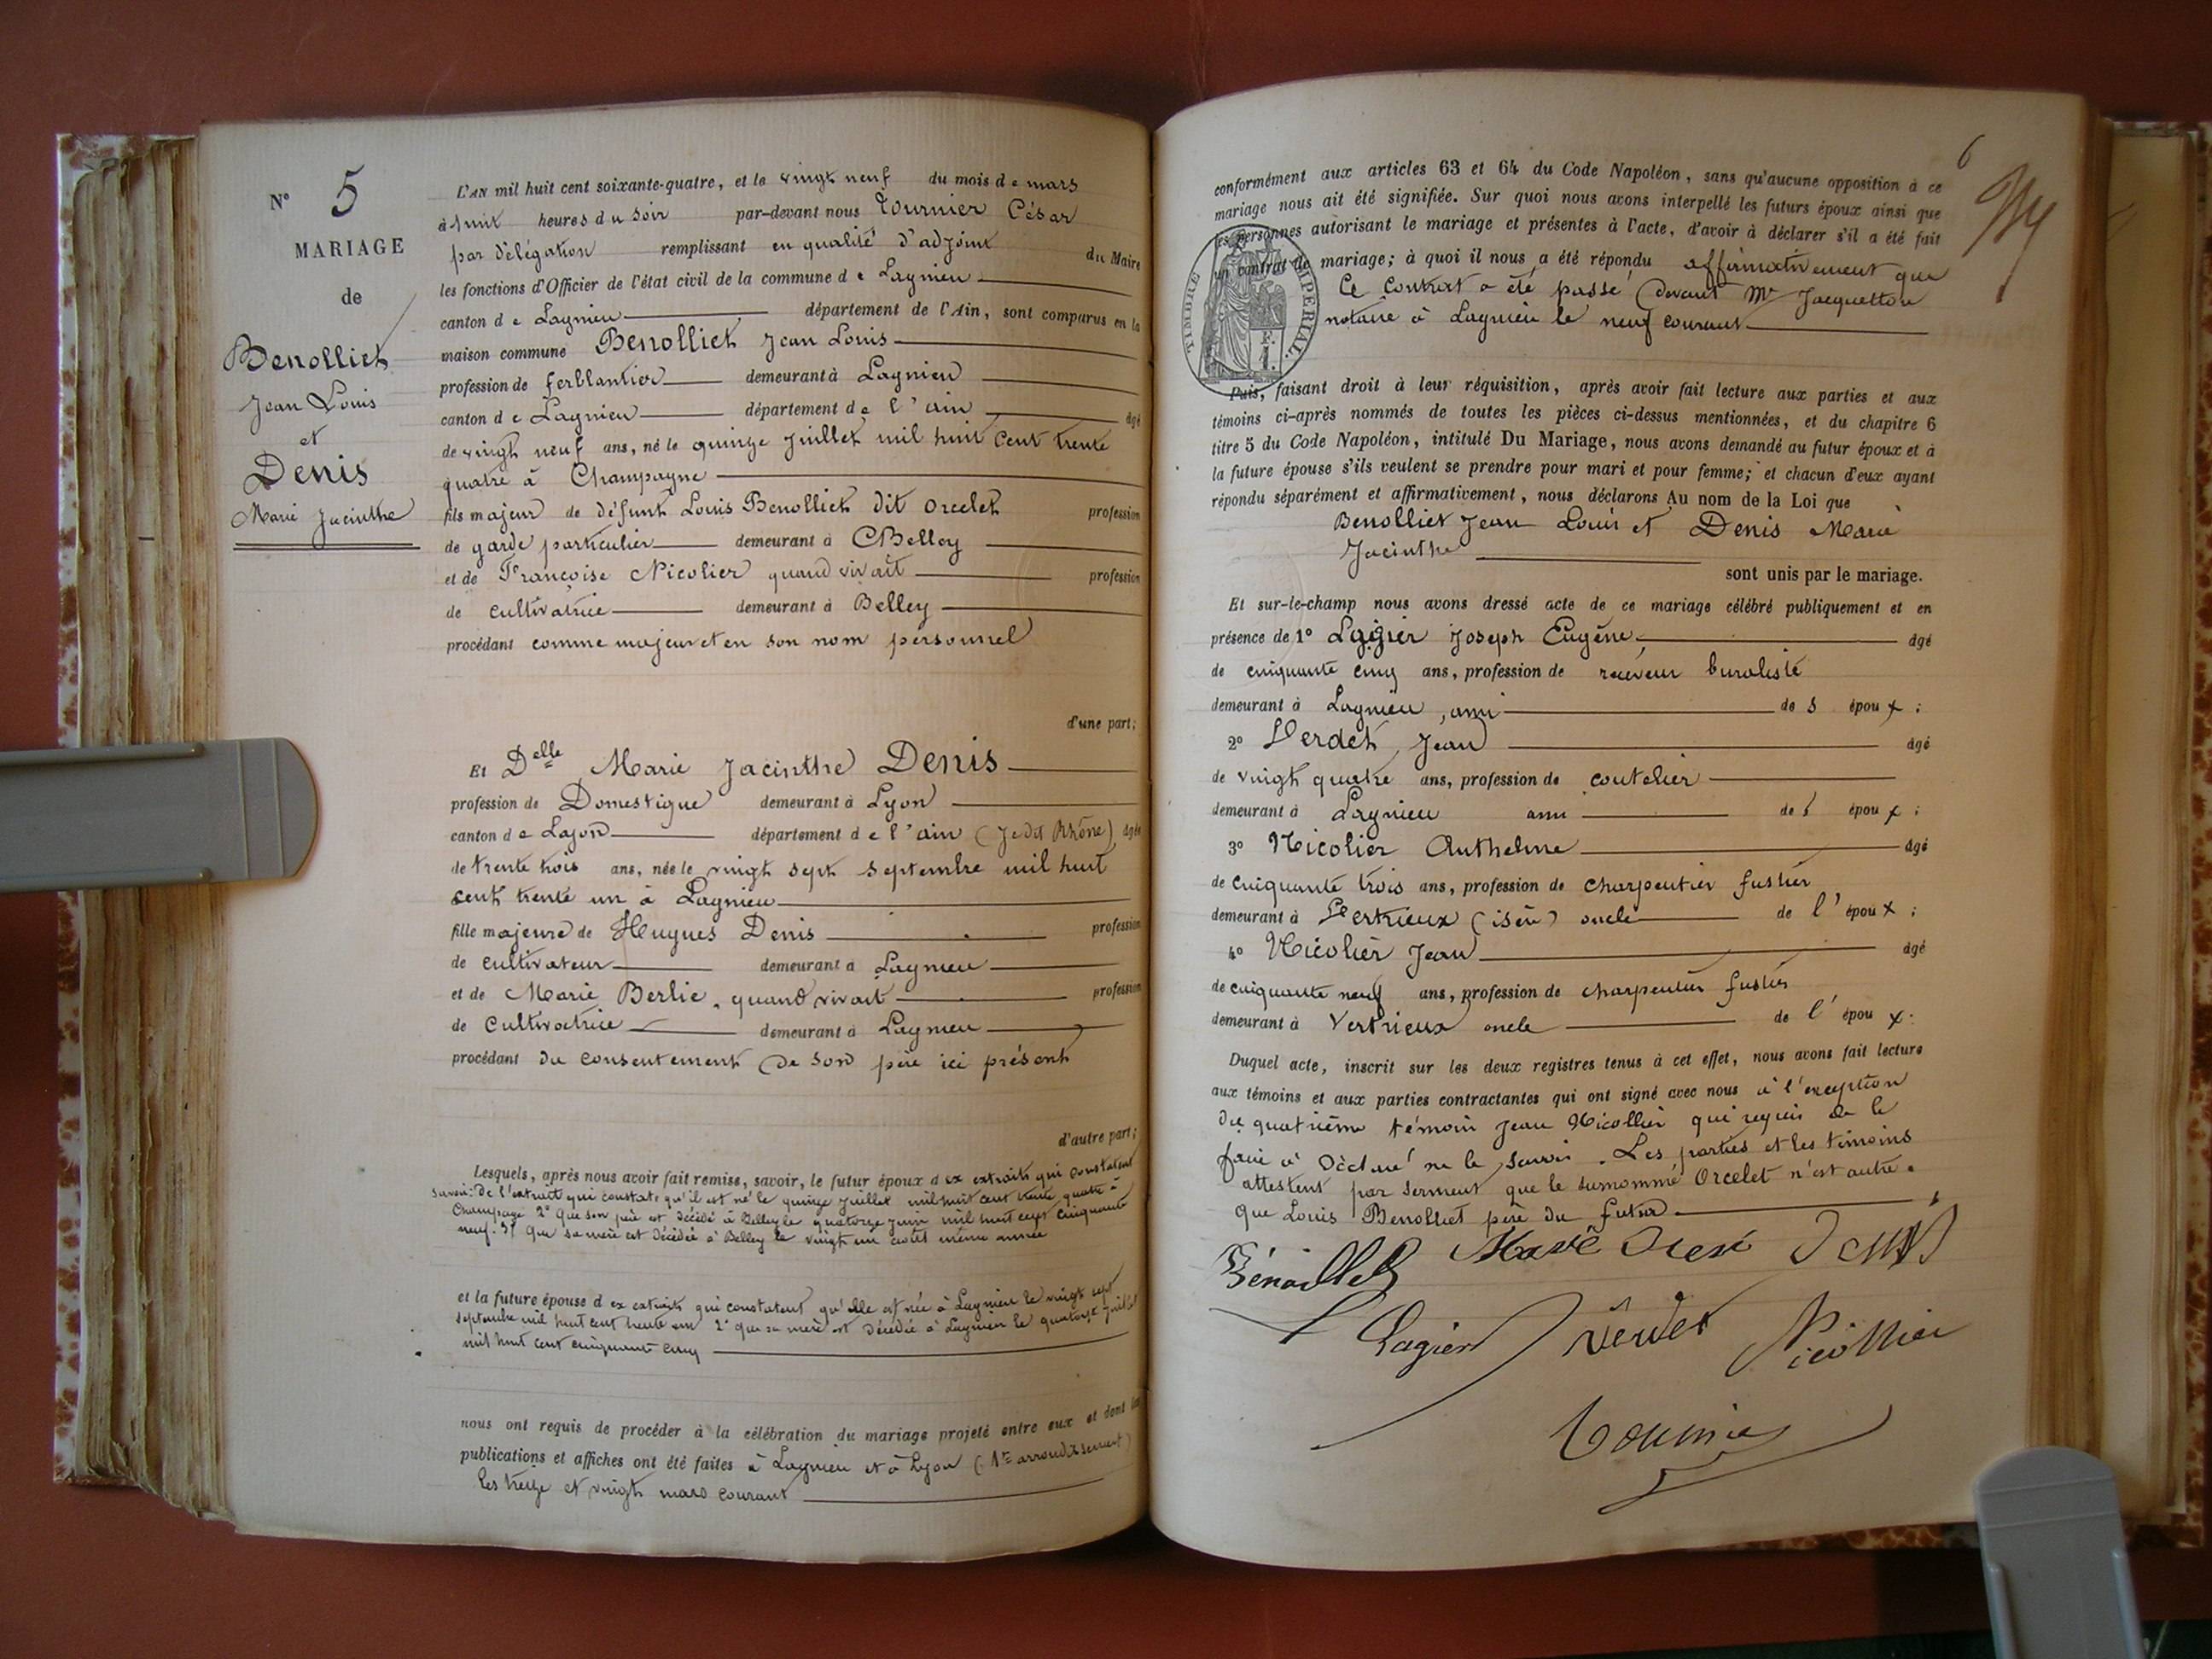 N° 5
MARIAGE
de
Benolliet
Jean Louis
et
Denis
Marie Jacinthe
L'AN mil huit cent soixante-quatre, et le vingt neuf du mois de mars
à huit heures du soir par-devant nous Tournier César
par délégation remplissant en qualité d'adjoint du Maire
les fonctions d'Officier de l'état civil de la commune de Lagnieu
canton de Lagnieu département de l'Ain, sont comparus en la
maison commune Benolliet Jean Louis
profession de ferblantier demeurant à Lagnieu
canton de Lagnieu département de l'ain âgé
de vingt neuf ans, né le quinze Juillet mil huit cent trente
quatre à Champagne
fils majeur de défunt Louis Benolliet dit Orcelet profession
de garde particulier demeurant à Belley
et de Françoise Nicolier quand vivait profession
de cultivatrice demeurant à Belley
procédant comme majeur et en son nom personnel
d'une part;
Et Delle Marie Jacinthe Denis
profession de Domestique demeurant à Lyon
canton de Lyon département de l'ain (Je dit Rhône) âgée
de trente trois ans, née le vingt sept septembre mil huit
cent trente un à Lagnieu
fille majeure de Hugues Denis profession
de cultivateur demeurant à Lagnieu
et de Marie Berlie, quand vivait profession
de cultivatrice demeurant à Lagnieu
procédant du consentement de son père ici présent
d'autre part;
Lesquels, après nous avoir fait remise, savoir, le futur époux d ex extraits qui constatent
savoir: De l'extrait qui constate qu'il est né le quinze Juillet mil huit cent trente quatre à
Champagne 2° que son père est décédé à Belley le quatorze Juin mil huit cent cinquante
neuf. 3° que sa mère est décédée à Belley le vingt un août même année
et la future épouse d ex extraits qui constatent qu'elle est née à Lagnieu le vingt sept
septembre mil huit cent trente un 2° que sa mère est décédée à Lagnieu le quatorze Juillet
mil huit cent cinquante cinq
nous ont requis de procéder à la célébration du mariage projeté entre eux et dont les
publications et affiches ont été faites à Lagnieu et à Lyon (1er arrondissement)
les treize et vingt mars courant
6
conformément aux articles 63 et 64 du Code Napoléon, sans qu'aucune opposition à ce
mariage nous ait été signifiée. Sur quoi nous avons interpellé les futurs époux ainsi que
les personnes autorisant le mariage et présentes à l'acte, d'avoir à déclarer s'il a été fait
un contrat de mariage; à quoi il nous a été répondu affirmativement que
Ce contrat a été passé devant Me Jacquetton
notaire à Lagnieu le neuf courant
TIMBRE IMPERIAL
F.
1.
Puis, faisant droit à leur réquisition, après avoir fait lecture aux parties et aux
témoins ci-après nommés de toutes les pièces ci-dessus mentionnées, et du chapitre 6
titre 5 du Code Napoléon, intitulé Du Mariage, nous avons demandé au futur époux et à
la future épouse s'ils veulent se prendre pour mari et pour femme; et chacun d'eux ayant
répondu séparément et affirmativement, nous déclarons Au nom de la Loi que
Benolliet Jean Louis et Denis Marie
Jacinthe
sont unis par le mariage.
Et sur-le-champ nous avons dressé acte de ce mariage célébré publiquement et en
présence de 1° Lagier Joseph Eugène âgé
de cinquante cinq ans, profession de receveur buraliste
demeurant à Lagnieu, ami de s époux;
2° Verdet Jean âgé
de vingt quatre ans, profession de coutelier
demeurant à Lagnieu ami de s époux;
3° Nicolier Anthelme âgé
de cinquante trois ans, profession de charpentier fustier
demeurant à Vertrieux (isère) oncle de l'époux;
4° Nicolier Jean âgé
de cinquante neuf ans, profession de charpentier fustier
demeurant à Vertrieux oncle de l'époux.
Duquel acte, inscrit sur les deux registres tenus à cet effet, nous avons fait lecture
aux témoins et aux parties contractantes qui ont signé avec nous à l'exception
du quatrième témoin Jean Nicollier qui requis de le
faire a déclaré ne le savoir. Les parties et les témoins
attestent par serment que le surnommé Orcelet n'est autre
que Louis Benolliet père du futur
Bénoillet Denis
Lagier Verdet Nicollier
Tournier